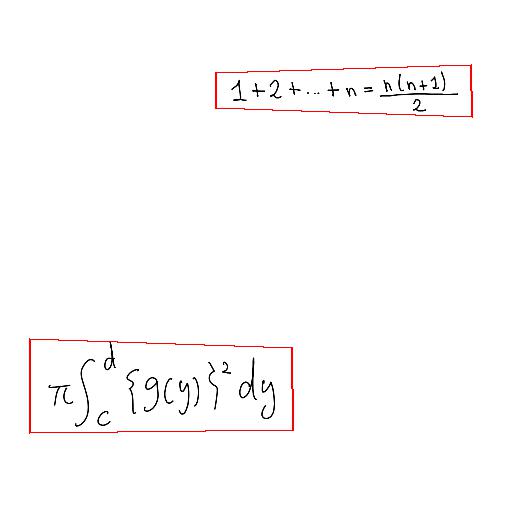 1+2+...+n=\frac{n(n+1)}{2}
\pi\int_{c}^{d}\{g(y)\}^{2}dy